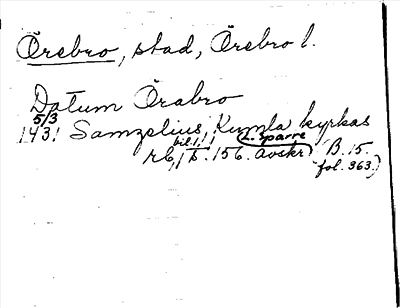 Örebro, stad, Örebro l.
Datum Örabro
5/3
1431 Samzelius, Kumla kyrkas
rb, bil. 1, s. 156. (L. Sparre avskr. B. 15.
fol. 363.)